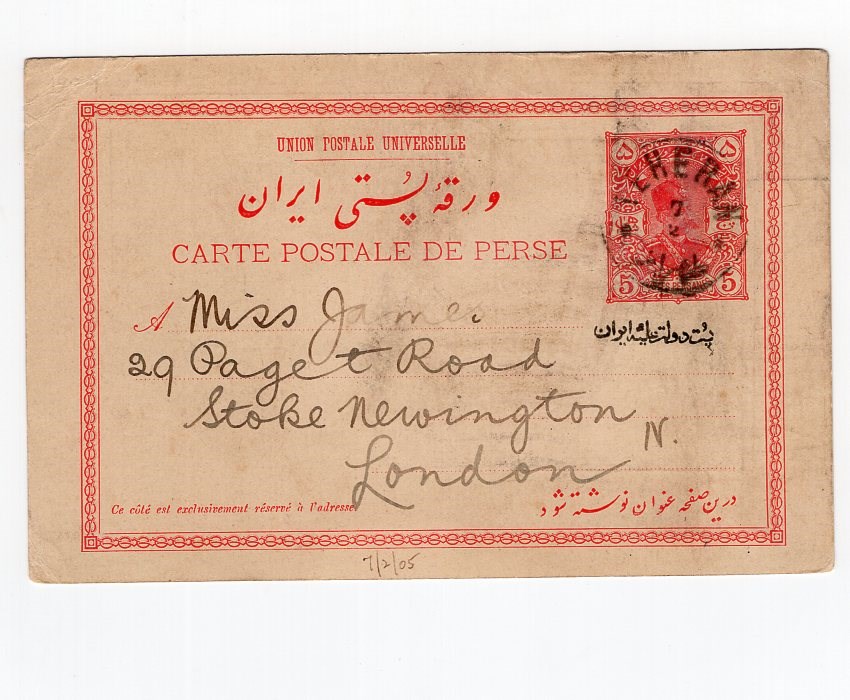 UNION POSTALE UNIVERSELLE
ورقهٔ پُستی ایران
CARTE POSTALE DE PERSE
۵ ۵
TEHERAN
7
2
5 5
پُست دولت علیّه ایران
A Miss James
29 Paget Road
Stoke Newington
N.
London
Ce côté est exclusivement réservé à l'adresse
درین صفحه عنوان نوشته شود
7/2/05